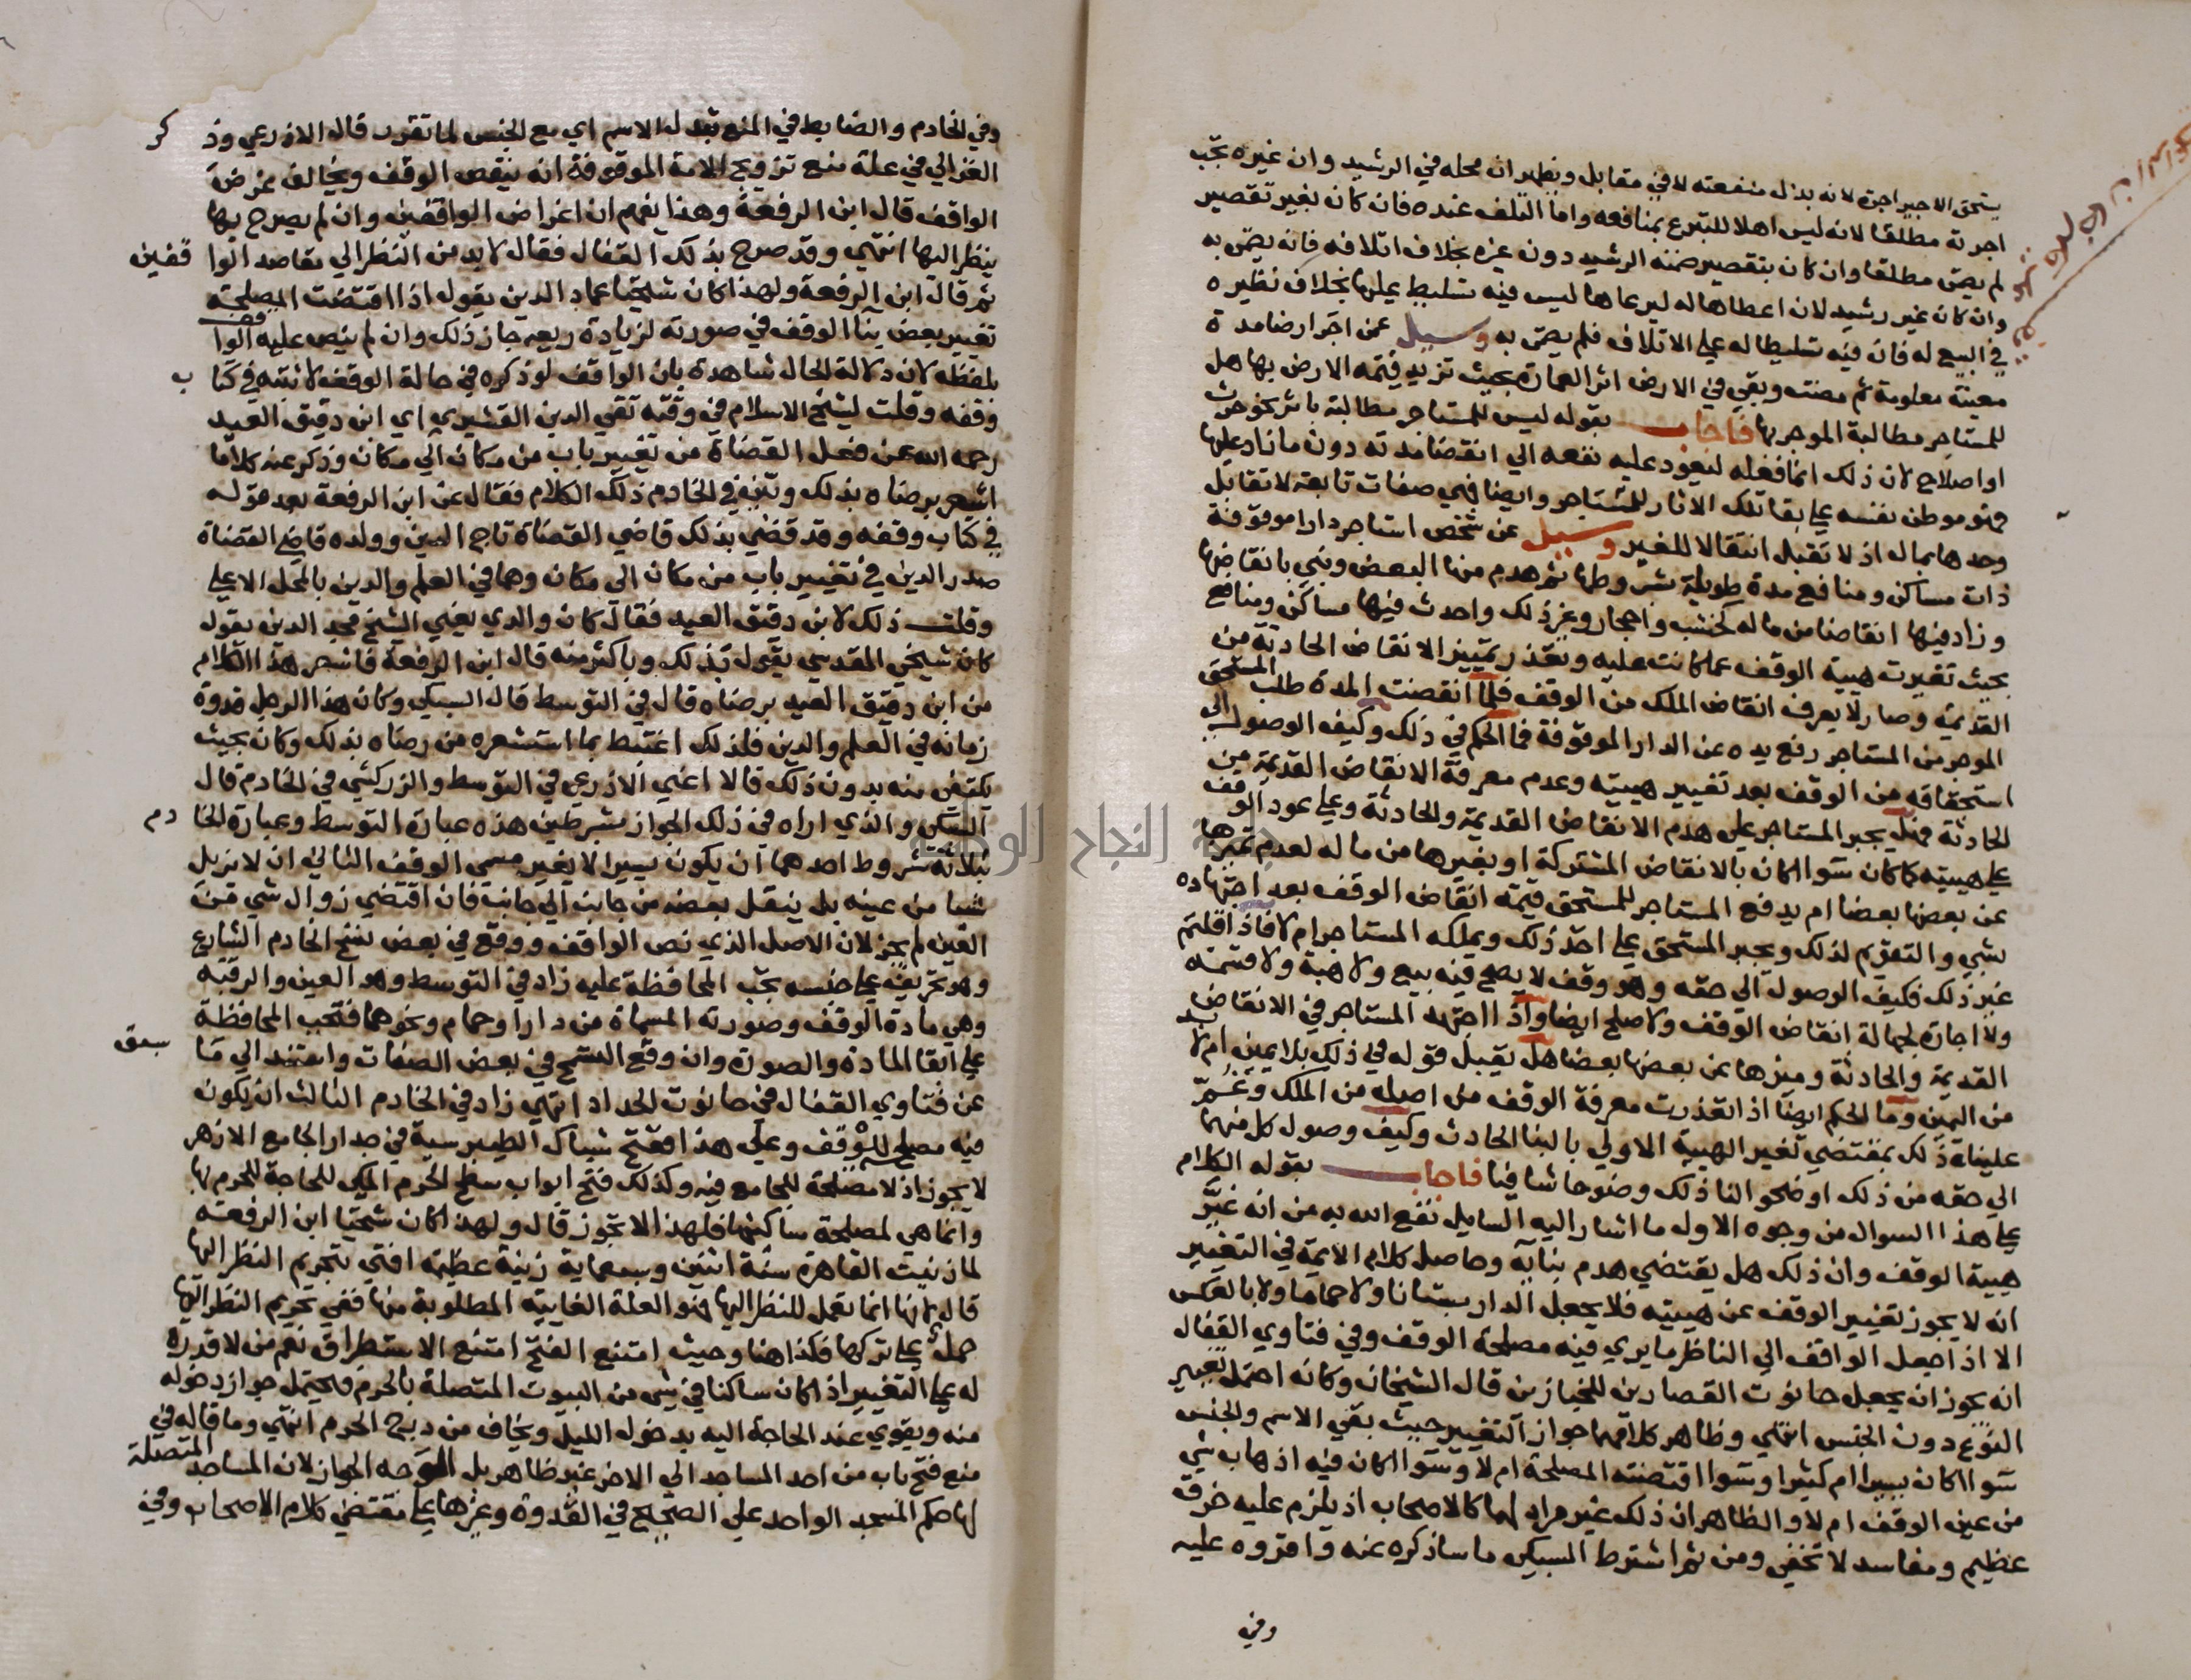 يستحق الاجير اجرة لانه بذل منفعته لا في مقابل ويظهر ان محله في الرشيد وان غيره تجب
اجرته مطلقا لانه ليس اهلا للتبرع بمنافعه واما التلف عنده فان كان بغير تقصير
لم يضمن مطلقا وان كان بتقصير ضمنه الرشيد دون غيره بخلاف اتلافه فانه يضمن به
وان كان غير رشيد لان اعطاها له ليرعاها ليس فيه تسليط عليها بخلاف نظيره
في البيع له فان فيه تسليطا له علي الاتلاف فلم يضمن به وسيل عمن اجر ارضا مدة
معينة معلومة ثم مضت وبقي في الارض اثر العمارة بحيث تزيد قيمة الارض بها هل
للمستاجر مطالبة الموجر بها فاجاب بقوله ليس للمستاجر مطالبة باثر نحو حرث
او اصلاح لان ذلك انما فعله ليعود عليه نفعه الي انقضا مدته دون ما زاد عليها
فهو موطن نفسه علي بقا تلك الاثار للمستاجر وايضا فهي صفات تابعة لا تقابل
وحدها بمال اذ لا تقبل انتقالا للغير وسيل عن شخص استاجر دارا موقوفة
ذات مساكن ومنافع مدة طويلة بشروطها ثم هدم منها البعض وبني بانقاضها
وزاد فيها انقاضا من ماله كخشب واحجار وغير ذلك واحدث فيها مساكن ومنافع
بحيث تغيرت هيية الوقف عما كانت عليه وتعذر تمييز الانقاض الحادثة من
القديمة وصار لا يعرف انقاض الملك من الوقف فلما انقضت المدة طلب المستحق
الموجر من المستاجر رفع يده عن الدار الموقوفة فما الحكم في ذلك وكيف الوصول الي
استحقاقه من الوقف بعد تغيير هييته وعدم معرفة الانقاض القديمة من
الحادثة فهل يجبر المستاجر علي هدم الانقاض القديمة والحادثة وعلي عود الوقف
علي هييته كما كان سوا اكان بالانقاض المشتركة او بغيرها من ماله لعدم تميزها
عن بعضها بعضا ام يدفع المستاجر للمستحق قيمة انقاض الوقف بعد اجتهاده
بشي والتقويم لذلك ويجبر المستحق علي اخذ ذلك ويملكه المستاجر ام لا فاذا قلتم
غير ذلك فكيف الوصول الي حقه وهو وقف لا يصح فيه بيع ولا هبة ولا قسمة
ولا اجارة لجهالة انقاض الوقف ولا صلح ايضا واذا اجتهد المستاجر في الانقاض
القديمة والحادثة وميزها عن بعضها بعضا هل يقبل قوله في ذلك بلا يمين ام لا بد
من اليمين وما الحكم ايضا اذا تعذرت معرفة الوقف من اصله من الملك وغم
علينا ذلك بمقتضي تغير الهيية الاولي بالبنا الحادث وكيف وصول كل منهما
الي حقه من ذلك اوضحوا لنا ذلك وضوحا شافيا فاجاب بقوله الكلام
علي هذا السوال من وجوه الاول ما اشار اليه السايل نفع الله به من انه غير
هيية الوقف وان ذلك هل يقتضي هدم بنايه وحاصل كلام الايمة في التغيير
انه لا يجوز تغيير الوقف عن هييته فلا يجعل الدار بستانا ولا حماما ولا بالعكس
الا اذا جعل الواقف الي الناظر ما يري فيه مصلحة الوقف وفي فتاوي القفال
انه يجوز ان يجعل حانوت القصارين للخبازين قال الشيخان وكانه احتمل تغيير
النوع دون الجنس انتهي وظاهر كلامهما جواز التغيير حيث بقي الاسم والجنس
سوا اكان يسيرا ام كثيرا وسوا اقتضته المصلحة ام لا وسوا اكان فيه اذهاب شي
من عين الوقف ام لا والظاهر ان ذلك غير مراد لهما كالاصحاب اذ يلزم عليه خرق
عظيم ومفاسد لا تخفي ومن ثم اشترط السبكي ما ساذكره عنه واقروه عليه
وفي
وفي الخادم والضابط في المنع تبدل الاسم اي مع الجنس لما تقرر قال الاذرعي وذكر
الغزالي في علة منع تزويج الامة الموقوفة انه ينقص الوقف ويخالف غرض
الواقف قال ابن الرفعة وهذا يفهم ان اغراض الواقفين وان لم يصرح بها
ينظر اليها انتهي وقد صرح بذلك القفال فقال لا بد من النظر الي مقاصد الواقفين
ثم قال ابن الرفعة ولهذا كان شيخنا عماد الدين يقول اذا اقتضت المصلحة
تغيير بعض بنا الوقف في صورته لزيادة ريعه جاز ذلك وان لم ينص عليه الواقف
بلفظه لان دلالة الحال شاهدة بان الواقف لو ذكره في حالة الوقف لاثبته في كتاب
وقفه وقلت لشيخ الاسلام في وقته تقي الدين القشيري اي ابن دقيق العيد
رحمه الله عن فعل القضاة من تغيير باب من مكان الي مكان وذكر عنه كلاما
اشعر برضاه بذلك وبين في الخادم ذلك الكلام فقال عن ابن الرفعة بعد قوله
في كتاب وقفه وقد قضي بذلك قاضي القضاة تاج الدين وولده قاضي القضاة
صدر الدين في تغيير باب من مكان الي مكان وهما في العلم والدين بالمحل الاعلي
وقلت ذلك لابن دقيق العيد فقال كان والدي يعني الشيخ مجد الدين يقول
كان شيخي المقدسي يقول بذلك وباكثر منه قال ابن الرفعة فاشعر هذا الكلام
من ابن دقيق العيد برضاه قال في التوسط قال السبكي وكان هذا الرجل قدوة
زمانه في العلم والدين فلذلك اغتبط بما استشعره من رضاه بذلك وكان بحيث
يكتفي منه بدون ذلك قالا اعني الاذرعي في التوسط والزركشي في الخادم قال
السبكي والذي اراه في ذلك الجواز بشرطين هذه عبارة التوسط وعبارة الخادم
بثلاثة شروط احدهما ان يكون يسيرا لا يغير مسمي الوقف الثاني ان لا يزيل
شيا من عينه بل ينقل بعضه من جانب الي جانب فان اقتضي زوال شي من
العين لم يجز لان الاصل الذي نص الواقف ووقع في بعض نسخ الخادم الشارع
وهو تحريف علي حبسه تجب المحافظة عليه زاد في التوسط وهو العين والرقبة
وهي مادة الوقف وصورته المسماة من دار او حمام ونحوهما فتجب المحافظة
علي ابقا المادة والصورة وان وقع التسمح في بعض الصفات واستند الي ما سبق
عن فتاوي القفال في حانوت الحداد انتهي زاد في الخادم الثالث ان يكون
فيه مصلحة للوقف وعلي هذا ففتح شباك الطيبرسية في جدار الجامع الازهر
لا يجوز اذ لا مصلحة للجامع فيه وكذلك فتح ابواب سطح الحرم المكي للحاجة للحرم لها
وانما هي لمصلحة ساكنها فلهذا لا تجوز قال ولهذا كان شيخنا ابن الرفعة
لما زينت القاهرة سنة اثنين وسبعماية زينة عظيمة افتي بتحريم النظر اليها
قال لانها انما تعمل للنظر اليها فهو العلة الغايية المطلوبة منها ففي تحريم النظر اليها
حمل علي تركها فكذا هنا وحيث امتنع الفتح امتنع الاستطراق نعم من لا قدرة
له علي التغيير اذا كان ساكنا في شي من البيوت المتصلة بالحرم فيحتمل جواز دخوله
منه ويقوي عند الحاجة اليه بدخول الليل ويخاف من درج الحرم انتهي وما قاله في
منع فتح باب من احد المساجد الي الاخر غير ظاهر بل الوجه الجواز لان المساجد المتصلة
لها حكم المسجد الواحد علي الصحيح في القدوة وغيرها علي مقتضي كلام الاصحاب وفي